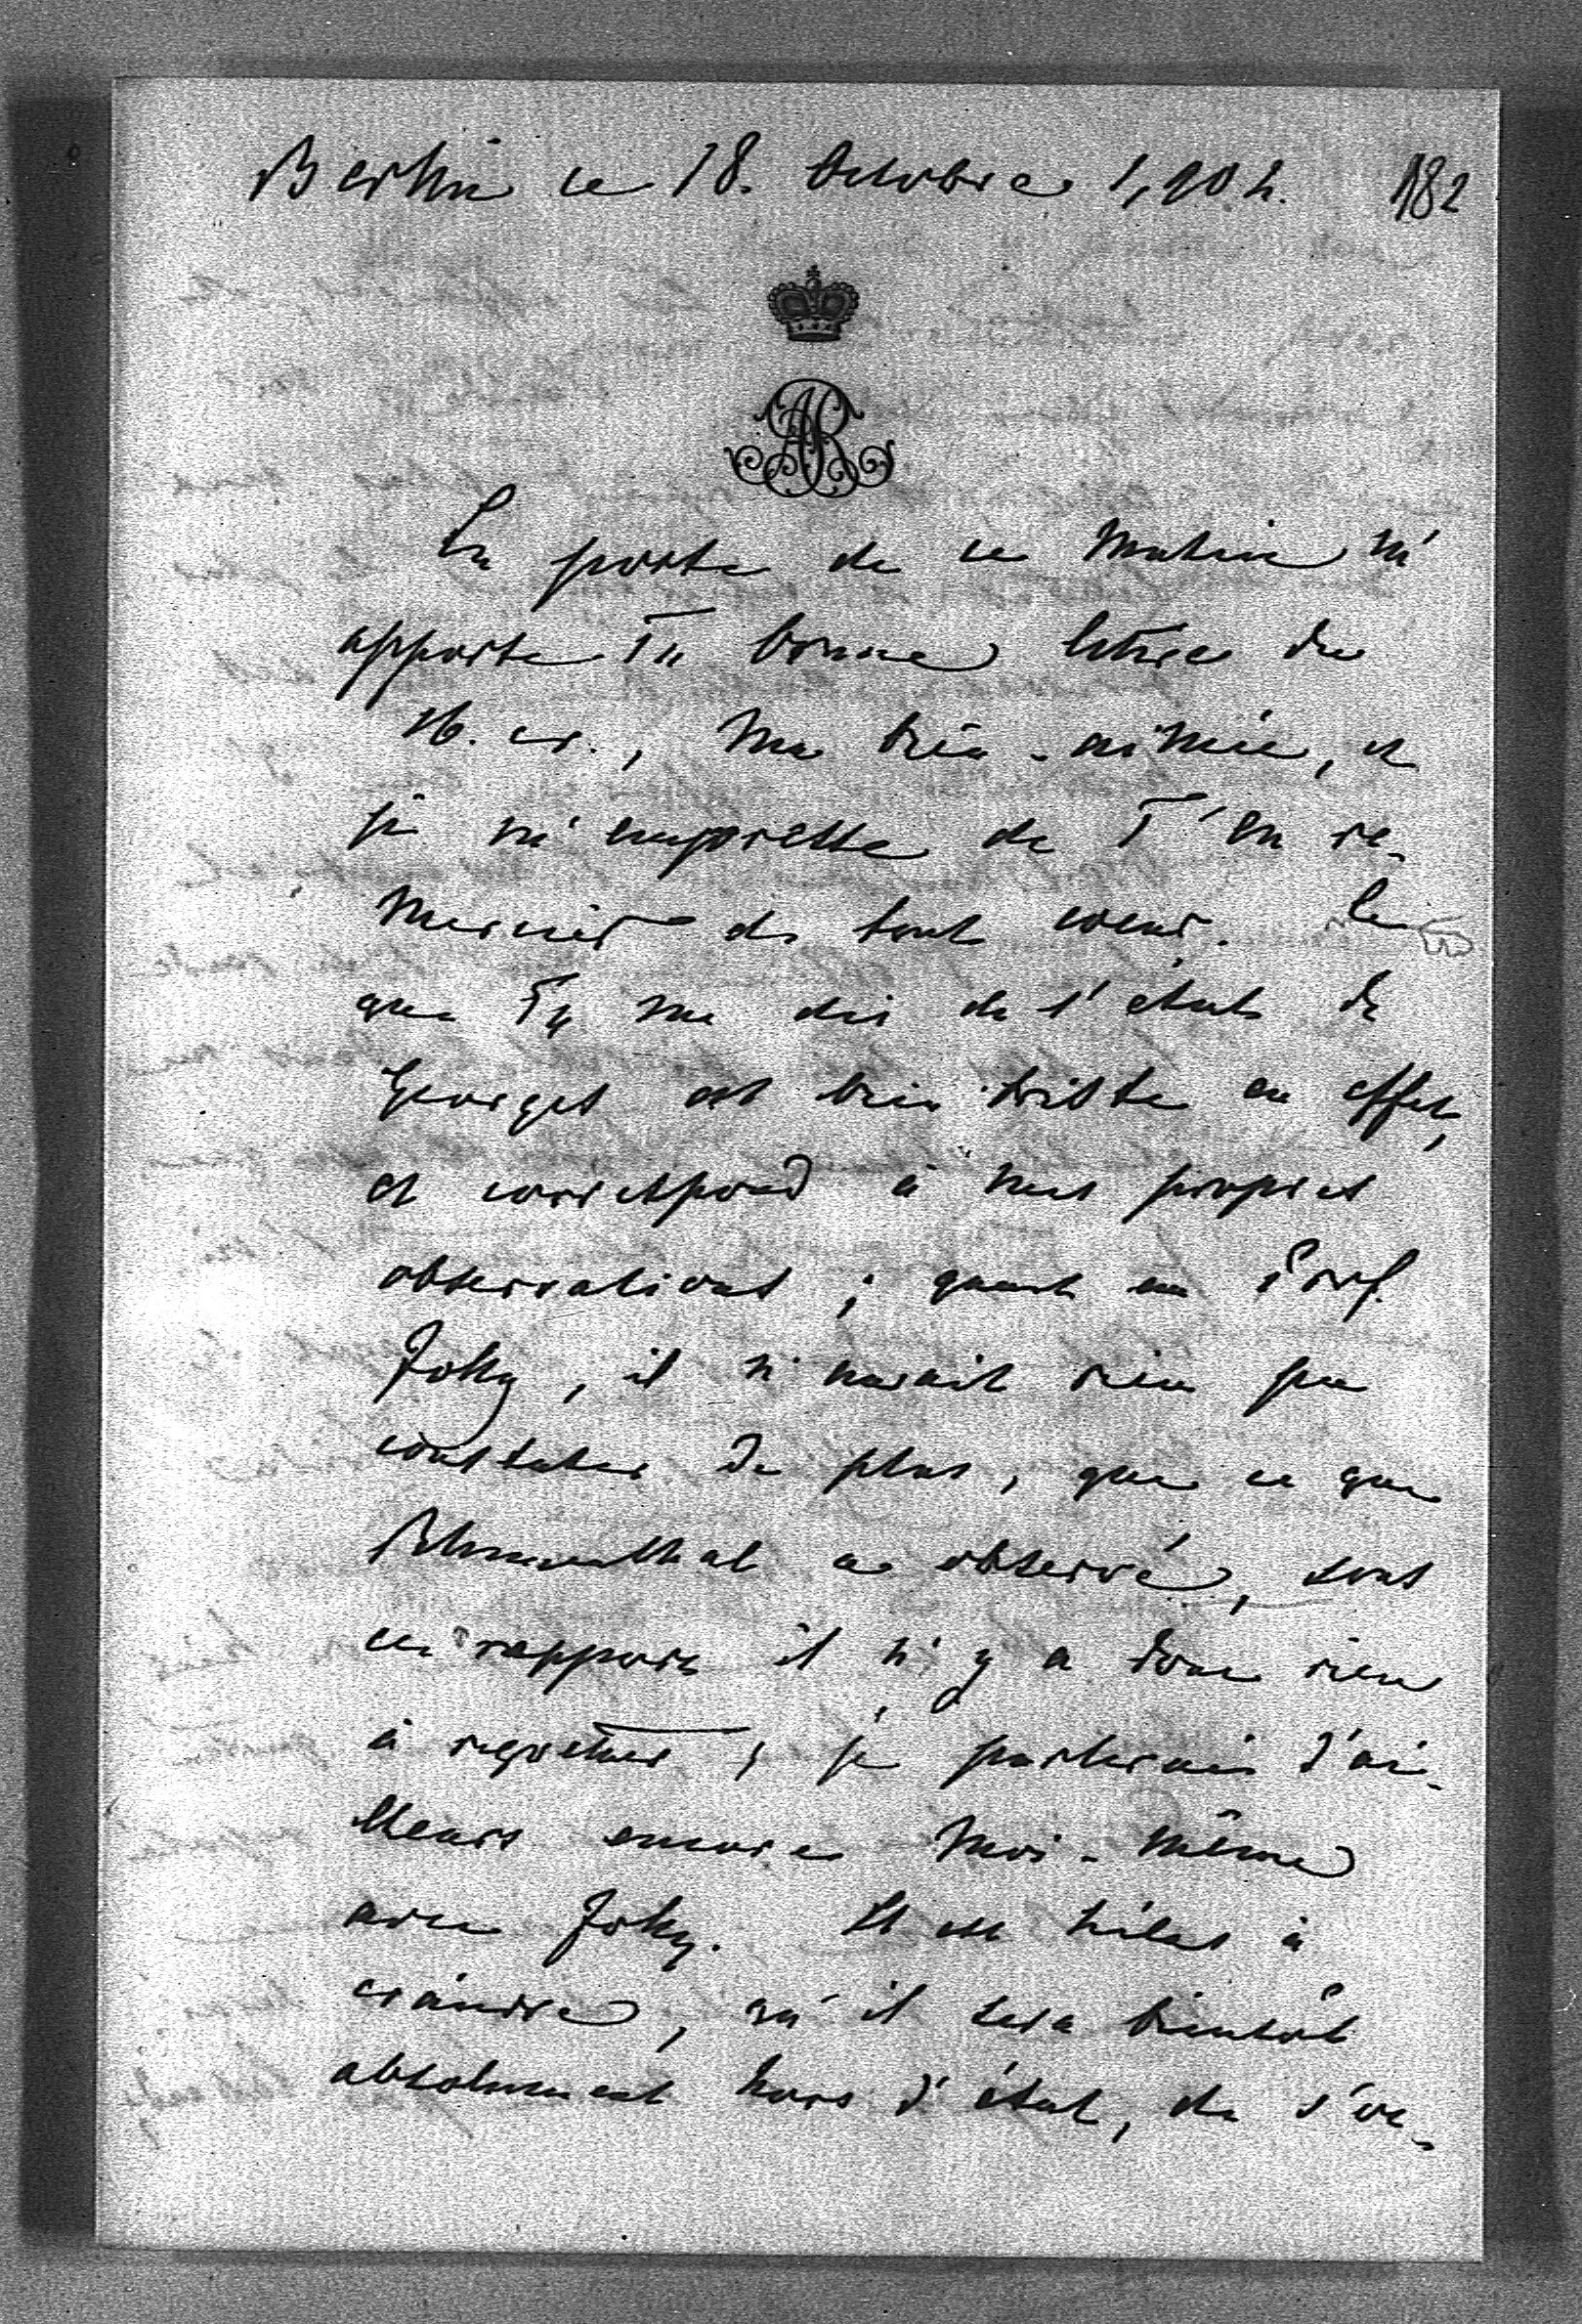 Berlin ce 18. Octobre 1,902. 182
AR
La poste de ce matin m'
apporte Ta bonne lettre du
16. cr., ma bien-aimée, et
je m'empresse de T'en re-
mercier de tout coeur. Ce
que Tu me dis de l'état de
Georges est bien triste en effet,
et correspond à mes propres
observations ; quant au Prof.
Jolly, il n'aurait rien pu
constater de plus, que ce que
Blumenthal a observé, sous
ce rapport il n'y a donc rien
à regretter ; je parlerais d'ai-
lleurs encore moi-même
avec Jolly. Il est hélas à
craindre, qu'il sera bientôt
absolument hors d'état, de s'oc-